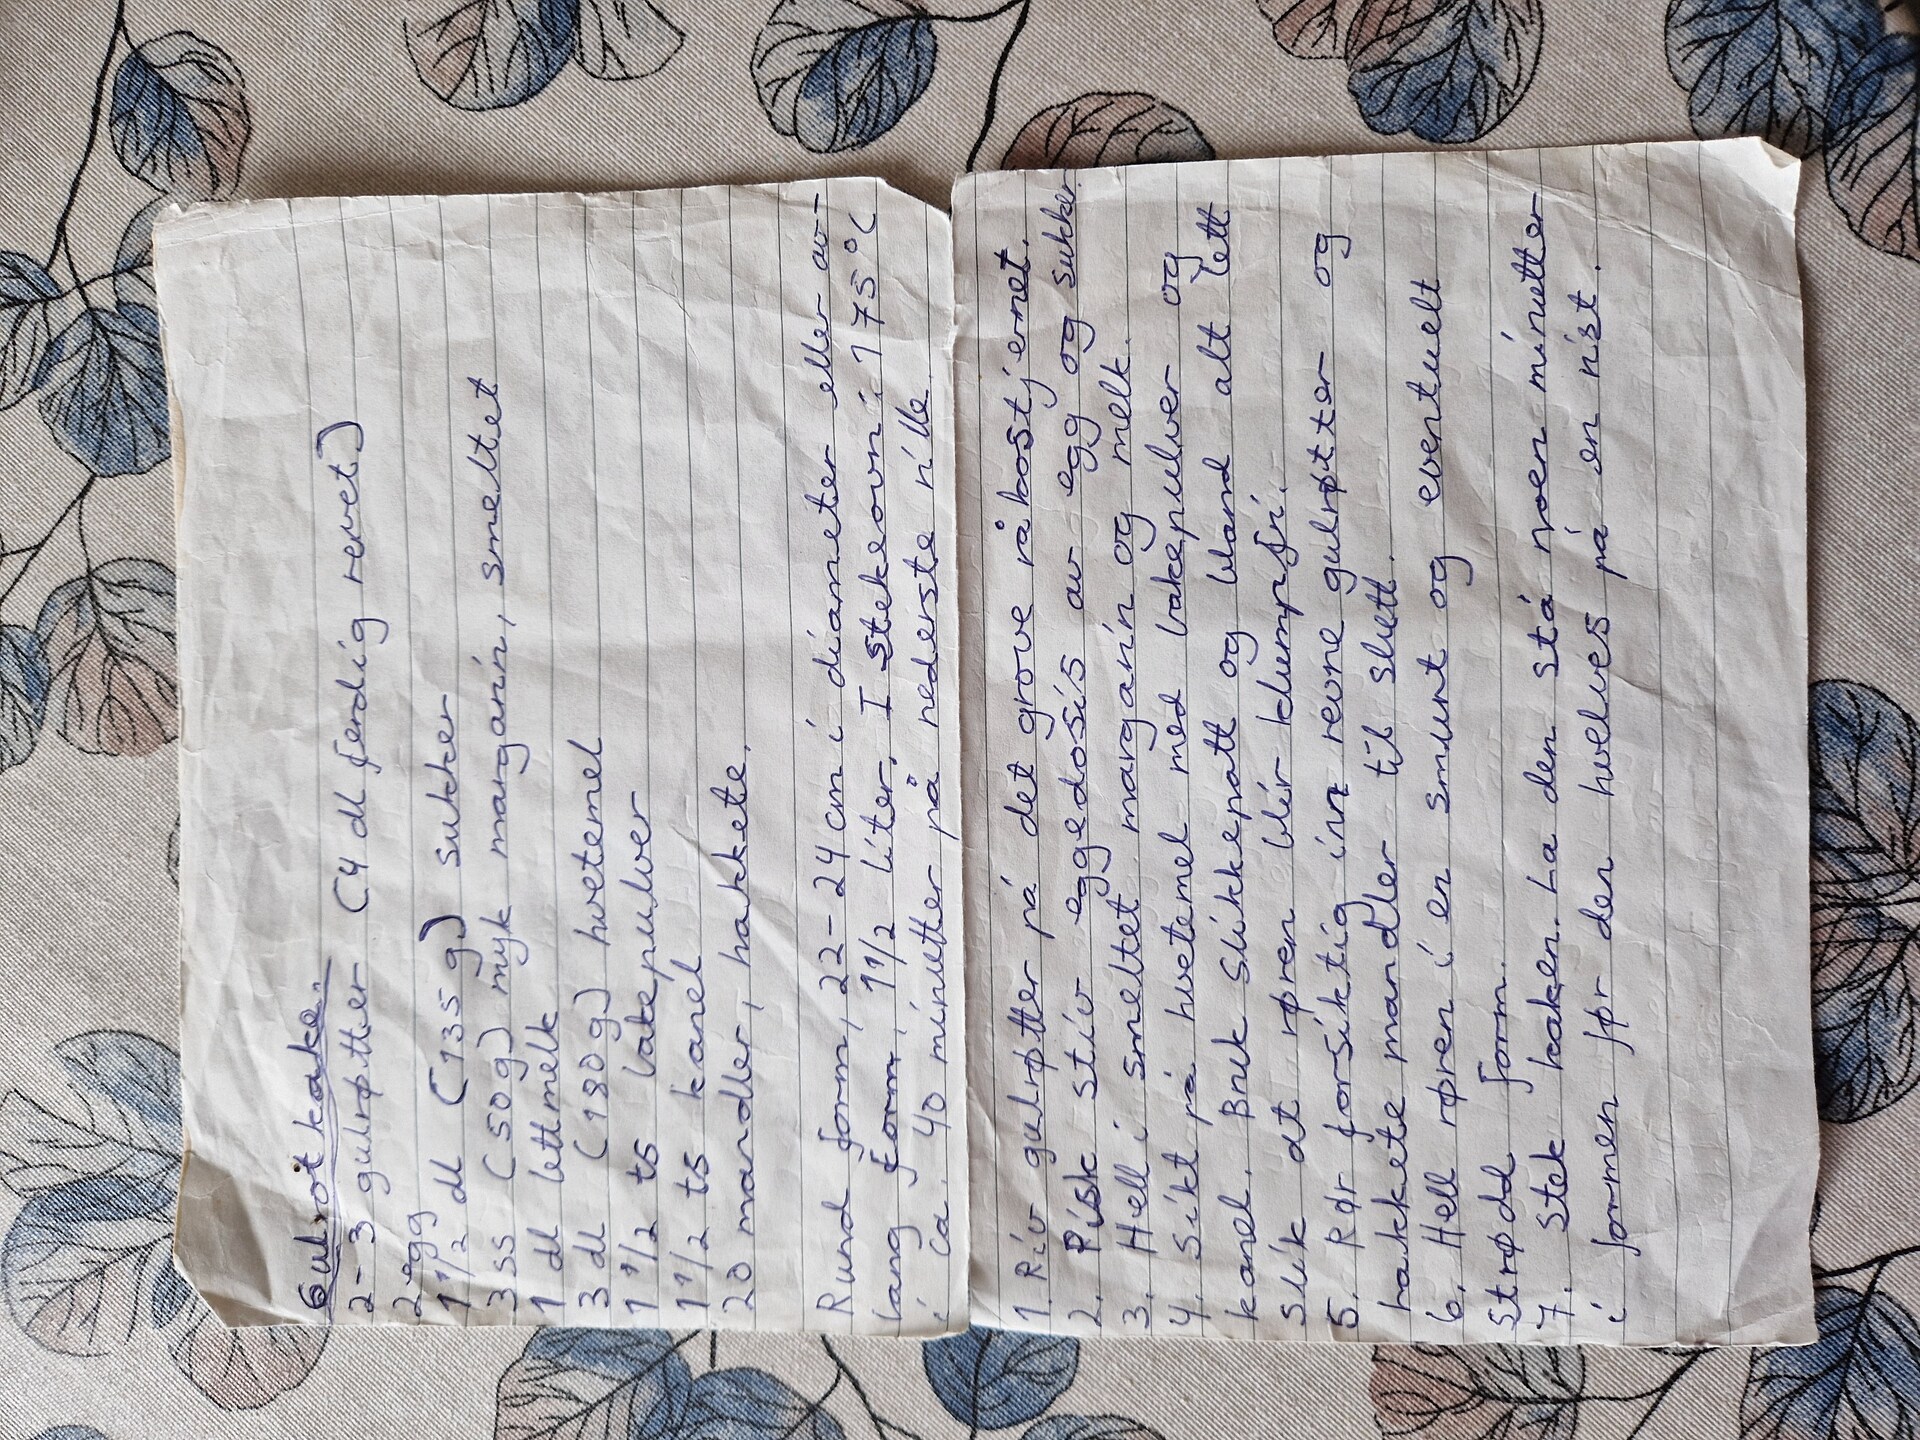 Gulrotkake.
2-3 gulrøtter (4 dl ferdig revet)
2 egg
1 1/2 dl (135 g) sukker
3 ss (50 g) myk margarin, smeltet
1 dl lettmelk
3 dl (180 g) hvetemel
1 1/2 ts bakepulver
1 1/2 ts kanel
20 mandler, hakkete.
Rund form, 22-24 cm i diameter eller av-
lang form, 1 1/2 liter. I stekeovn: 175°C
i ca. 40 minutter på nederste rille.
1. Riv gulrøtter på det grove råkostjernet.
2. Pisk stiv eggedosis av egg og sukker.
3. Hell i smeltet margarin og melk.
4. Sikt på hvetemel med bakepulver og
kanel. Bruk slikkepott og bland alt lett
slik at røren blir klumpfri.
5. Rør forsiktig inn revne gulrøtter og
hakkete mandler til slutt.
6. Hell røren i en smurt og eventuelt
strødd form.
7. Stek kaken. La den stå noen minutter
i formen før den hvelves på en rist.